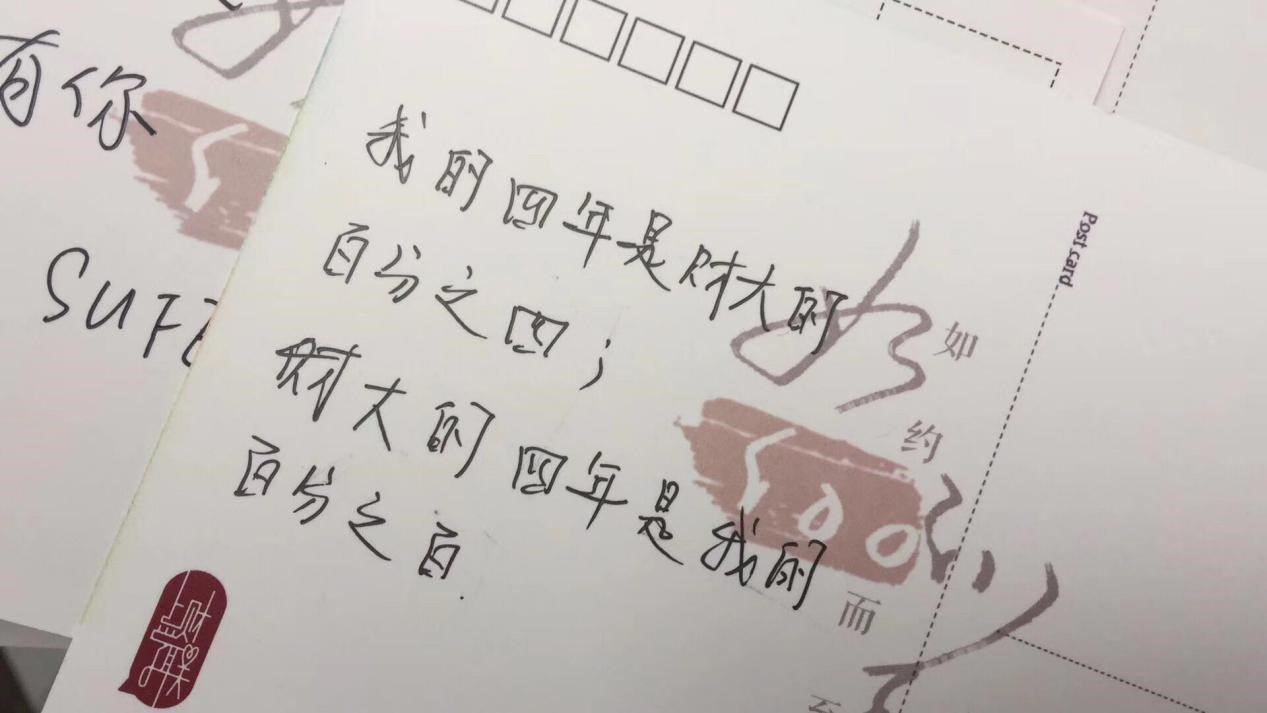 有你
SUFE
我的四年是财大的
百分之四；
财大的四年是我的
百分之百.
Post card
如
约
而
至
100
上财